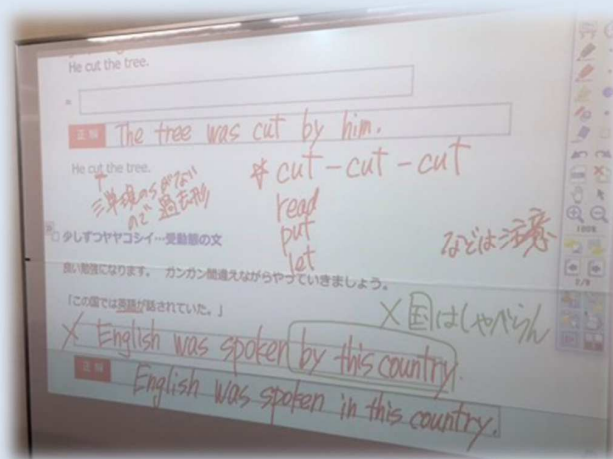 He cut the tree.
=
正解 The tree was cut by him.
He cut the tree.
↑
三単現のsがない
ので過去形
* cut-cut-cut
read
put
let
などは注意
少しずつヤヤコシイ…受動態の文
良い勉強になります。 ガンガン間違えながらやっていきましょう。
「この国では英語が話されていた。」
×国はしゃべらん
× English was spoken by this country.
正解 English was spoken in this country.